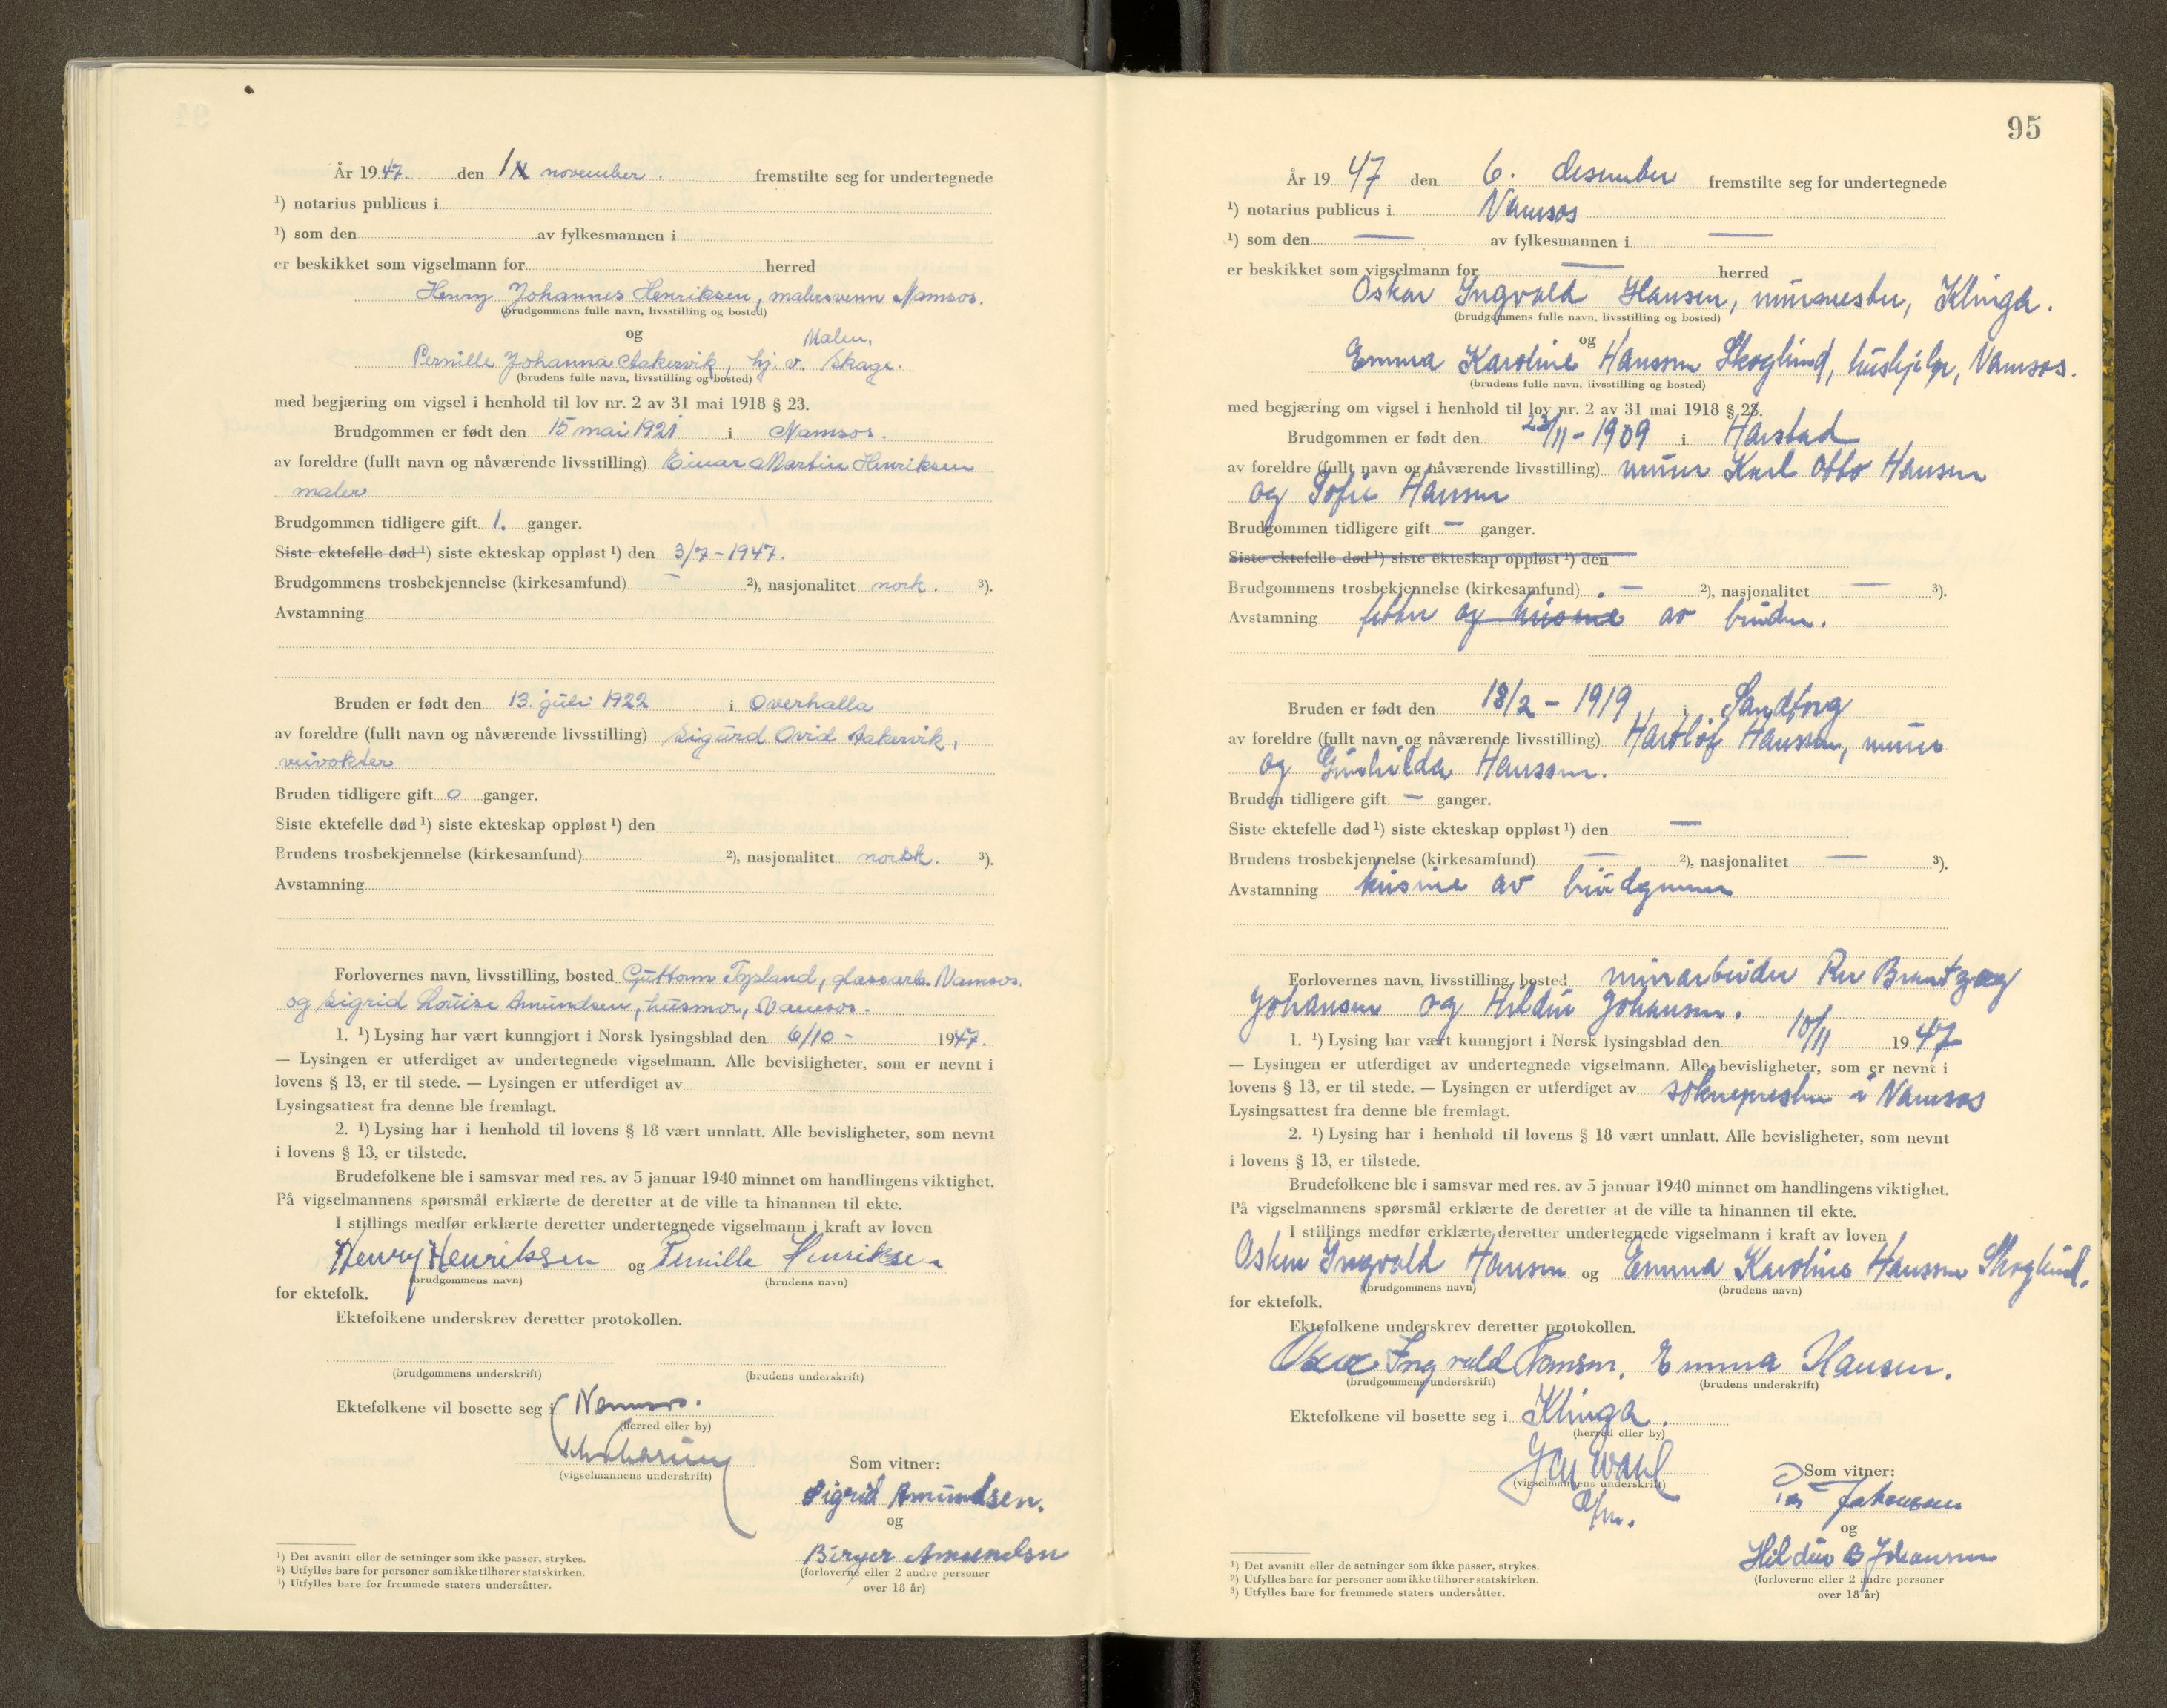 År 1947. den 1 november. fremstilte seg for undertegnede
¹) notarius publicus i
¹) som den av fylkesmannen i
er beskikket som vigselmann for herred
Henry Johannes Henriksen, malersvenn Namsos.
(brudgommens fulle navn, livsstilling og bosted)
og
Malen,
Pernille Johanna Aakervik, hj. v. Skage.
(brudens fulle navn, livsstilling og bosted)
med begjæring om vigsel i henhold til lov nr. 2 av 31 mai 1918 § 23.
Brudgommen er født den 15 mai 1921 i Namsos.
av foreldre (fullt navn og nåværende livsstilling) Einar Martin Henriksen
maler
Brudgommen tidligere gift 1. ganger.
Siste ektefelle død ¹) siste ekteskap oppløst ¹) den 3/7 - 1947.
Brudgommens trosbekjennelse (kirkesamfund) - ²), nasjonalitet nork. ³).
Avstamning
Bruden er født den 13. juli 1922 i Overhalla
av foreldre (fullt navn og nåværende livsstilling) Sigurd Ovid Aakervik,
veivokter
Bruden tidligere gift 0 ganger.
Siste ektefelle død ¹) siste ekteskap oppløst ¹) den
Brudens trosbekjennelse (kirkesamfund) ²), nasjonalitet norsk. ³).
Avstamning
Forlovernes navn, livsstilling, bosted Guttorm Topland, glassarb. Namsos.
og Sigrid Louise Amundsen, husmor, Namsos.
1. ¹) Lysing har vært kunngjort i Norsk lysingsblad den 6/10 - 1947.
— Lysingen er utferdiget av undertegnede vigselmann. Alle bevisligheter, som er nevnt i
lovens § 13, er til stede. — Lysingen er utferdiget av
Lysingsattest fra denne ble fremlagt.
2. ¹) Lysing har i henhold til lovens § 18 vært unnlatt. Alle bevisligheter, som nevnt
i lovens § 13, er tilstede.
Brudefolkene ble i samsvar med res. av 5 januar 1940 minnet om handlingens viktighet.
På vigselmannens spørsmål erklærte de deretter at de ville ta hinannen til ekte.
I stillings medfør erklærte deretter undertegnede vigselmann i kraft av loven
Henry Henriksen og Pernille Henriksen
(brudgommens navn) (brudens navn)
for ektefolk.
Ektefolkene underskrev deretter protokollen.
(brudgommens underskrift) (brudens underskrift)
Ektefolkene vil bosette seg i Namsos.
(herred eller by)
(vigselmannens underskrift)
Som vitner:
Sigrid Amundsen.
og
Birger Amundsen
(forloverne eller 2 andre personer
over 18 år)
¹) Det avsnitt eller de setninger som ikke passer, strykes.
²) Utfylles bare for personer som ikke tilhører statskirken.
³) Utfylles bare for fremmede staters undersåtter.
95
År 1947 den 6. desember fremstilte seg for undertegnede
¹) notarius publicus i Namsos
¹) som den — av fylkesmannen i —
er beskikket som vigselmann for — herred
Oskar Ingvald Hansen, murmester, Klinga.
(brudgommens fulle navn, livsstilling og bosted)
og
Emma Karoline Hanssen Skoglund, hushjelp, Namsos.
(brudens fulle navn, livsstilling og bosted)
med begjæring om vigsel i henhold til lov nr. 2 av 31 mai 1918 § 23.
Brudgommen er født den 23/11 - 1909 i Harstad
av foreldre (fullt navn og nåværende livsstilling) murer Karl Otto Hansen
og Sofie Hansen
Brudgommen tidligere gift — ganger.
Siste ektefelle død ¹) siste ekteskap oppløst ¹) den
Brudgommens trosbekjennelse (kirkesamfund) — ²), nasjonalitet — ³).
Avstamning fetter og kusine av bruden.
Bruden er født den 18/2 - 1919 i Sandtorg
av foreldre (fullt navn og nåværende livsstilling) Hartlof Hanssen, murer
og Gunhilda Hanssen.
Bruden tidligere gift — ganger.
Siste ektefelle død ¹) siste ekteskap oppløst ¹) den —
Brudens trosbekjennelse (kirkesamfund) — ²), nasjonalitet — ³).
Avstamning kusine av brudgummen
Forlovernes navn, livsstilling, bosted murarbeider Per Brantzæg
Johansen og Hildur Johansen.
1. ¹) Lysing har vært kunngjort i Norsk lysingsblad den 10/11 1947
— Lysingen er utferdiget av undertegnede vigselmann. Alle bevisligheter, som er nevnt i
lovens § 13, er til stede. — Lysingen er utferdiget av soknepresten i Namsos
Lysingsattest fra denne ble fremlagt.
2. ¹) Lysing har i henhold til lovens § 18 vært unnlatt. Alle bevisligheter, som nevnt
i lovens § 13, er tilstede.
Brudefolkene ble i samsvar med res. av 5 januar 1940 minnet om handlingens viktighet.
På vigselmannens spørsmål erklærte de deretter at de ville ta hinannen til ekte.
I stillings medfør erklærte deretter undertegnede vigselmann i kraft av loven
Oskar Ingvald Hansen og Emma Karoline Hanssen Skoglund.
(brudgommens navn) (brudens navn)
for ektefolk.
Ektefolkene underskrev deretter protokollen.
Oskar Ingvald Hansen. Emma Hansen.
(brudgommens underskrift) (brudens underskrift)
Ektefolkene vil bosette seg i Klinga.
(herred eller by)
(vigselmannens underskrift)
Som vitner:
Per Johansen
og
Hildur B Johansen
(forloverne eller 2 andre personer
over 18 år)
¹) Det avsnitt eller de setninger som ikke passer, strykes.
²) Utfylles bare for personer som ikke tilhører statskirken.
³) Utfylles bare for fremmede staters undersåtter.